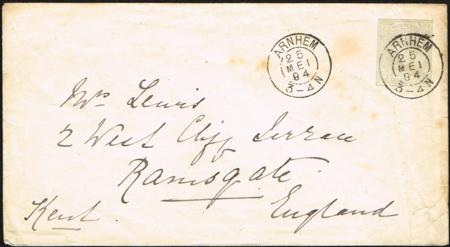 ARNHEM
25
MEI
94
3-4N
ARNHEM
25
MEI
94
3-4N
Mrs Lewis
2 West Cliff Terrace
Ramsgate
Kent. England